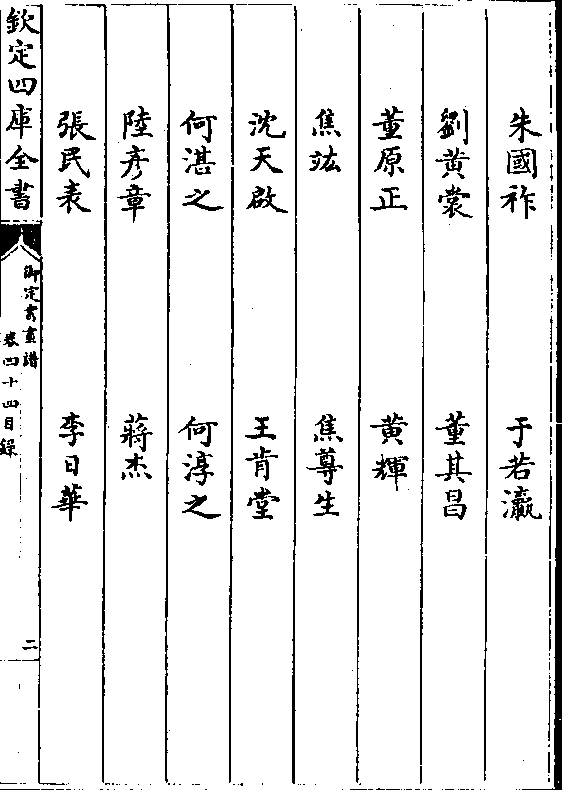 朱國祚 于若瀛
劉黄裳 董其昌
董原正 黄輝
焦竑 焦尊生
沈天啟 王肯堂
何湛之 何淳之
陸彦章 蔣杰
張民表 李日華
欽定四庫全書
御定書畫譜
卷四十四目錄
二